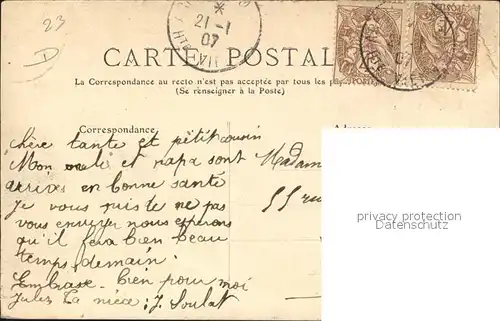 23
21-1
07
CARTE POSTALE
La Correspondance au recto n'est pas acceptée par tous les
(Se renseigner à la Poste)
Correspondance
chère tante et petit cousin
Mon oncle et papa sont
arrivés en bonne santé
Je vous ne pas
vous envoyer nous espérons
qu'il fera bien beau
temps demain.
Embrase bien pour moi
Jules Ta nièce: J. Soulat
Madam
55 ru
privacy protection
Datenschutz